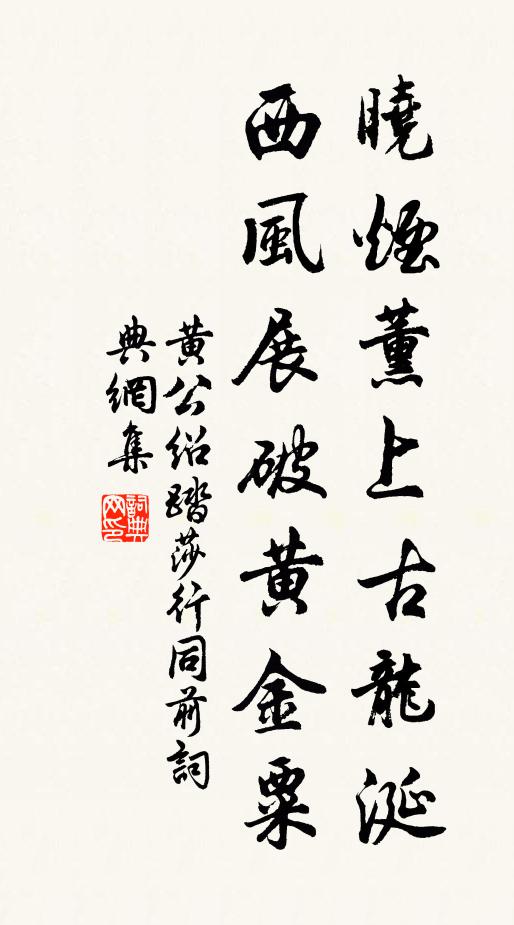 曉煙薰上古龍涎
西風展破黃金粟
黃公紹踏莎行同前詞
典網集
詞典網印